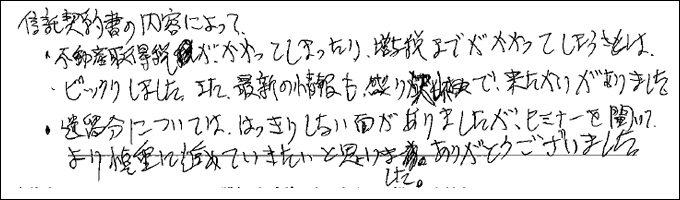 信託契約書の内容によって、
・不動産取得税が、かかってしまったり、増税までがかかってしまうとは、
・ビックリしました。また、最新の情報も、盛り沢山で、来たかいがありました
・遺留分については、はっきりしない面がありましたが、セミナーを聞いて、
より慎重に進めていきたいと思いました。ありがとうございました。